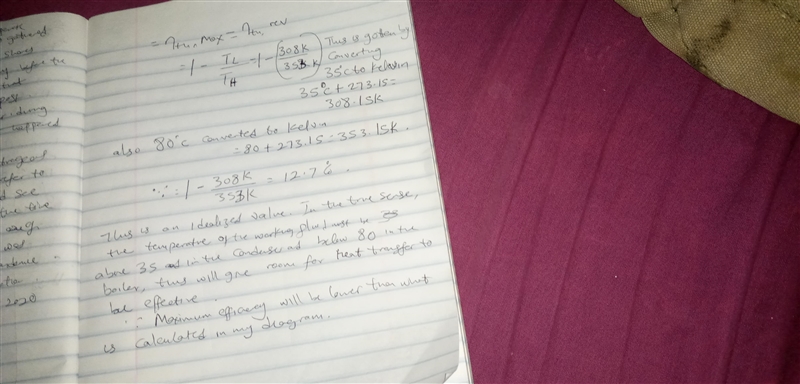 = ηth, max = ηth, rev
= 1 - TL/TH = 1 - (308K/353.K)
This is gotten by
converting
35°c to Kelvin
35°c + 273.15 =
308.15K
also 80°c converted to Kelvin
= 80 + 273.15 = 353.15K.
∵ = 1 - 308K/353K = 12.7%.
This is an idealized value. In the true sense,
the temperature of the working fluid must be
above 35 in the condenser and below 80 in the
boiler, this will give room for heat transfer to
be effective.
∴ Maximum efficiency will be lower than what
is calculated in my diagram.
to
see
2020